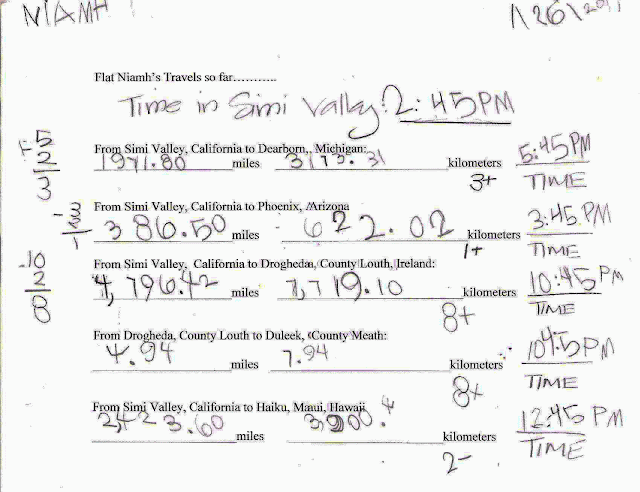 NIAMH 1\26\2011
Flat Niamh's Travels so far...........
Time in Simi Valley: 2:45PM
-5
2
3
From Simi Valley, California to Dearborn,, Michigan:
1971.80 miles 3173.31 kilometers 5:45PM
3+ TIME
-3
2
1
From Simi Valley, California to Phoenix, Arizona
386.50 miles 622.02 kilometers 3:45PM
1+ TIME
-10
2
8
From Simi Valley, California to Drogheda, County Louth, Ireland:
4,796.42 miles 7,719.10 kilometers 10:45PM
8+ TIME
From Drogheda, County Louth to Duleek, County Meath:
4.94 miles 7.94 kilometers 10:45PM
8+ TIME
From Simi Valley, California to Haiku, Maui, Hawaii
2,423.60 miles 3,900.4 kilometers 12:45 PM
2- TIME